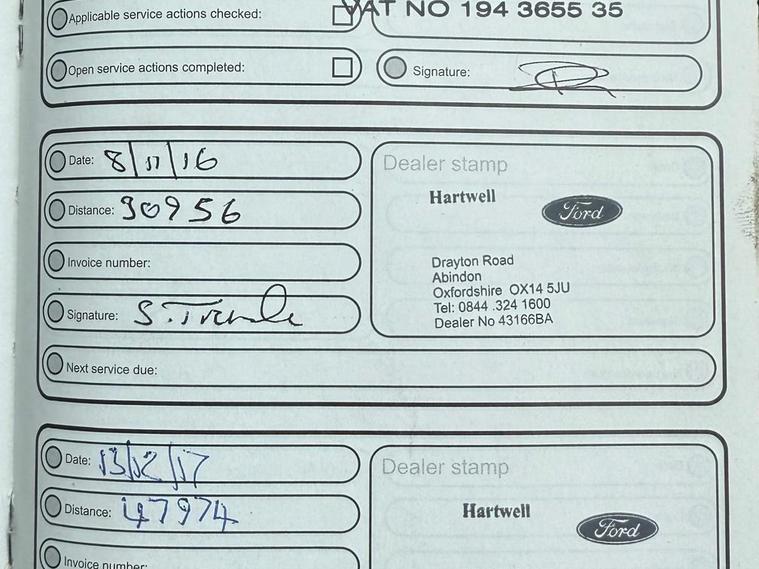 Applicable service actions checked:
VAT NO 194 3655 35
Open service actions completed:
Signature:
Date: 8/11/16
Distance: 30956
Invoice number:
Signature: S.
Next service due:
Dealer stamp
Hartwell
Ford
Drayton Road
Abindon
Oxfordshire OX14 5JU
Tel: 0844 .324 1600
Dealer No 43166BA
Date: 13/12/17
Distance: 47974
Invoice number:
Dealer stamp
Hartwell
Ford